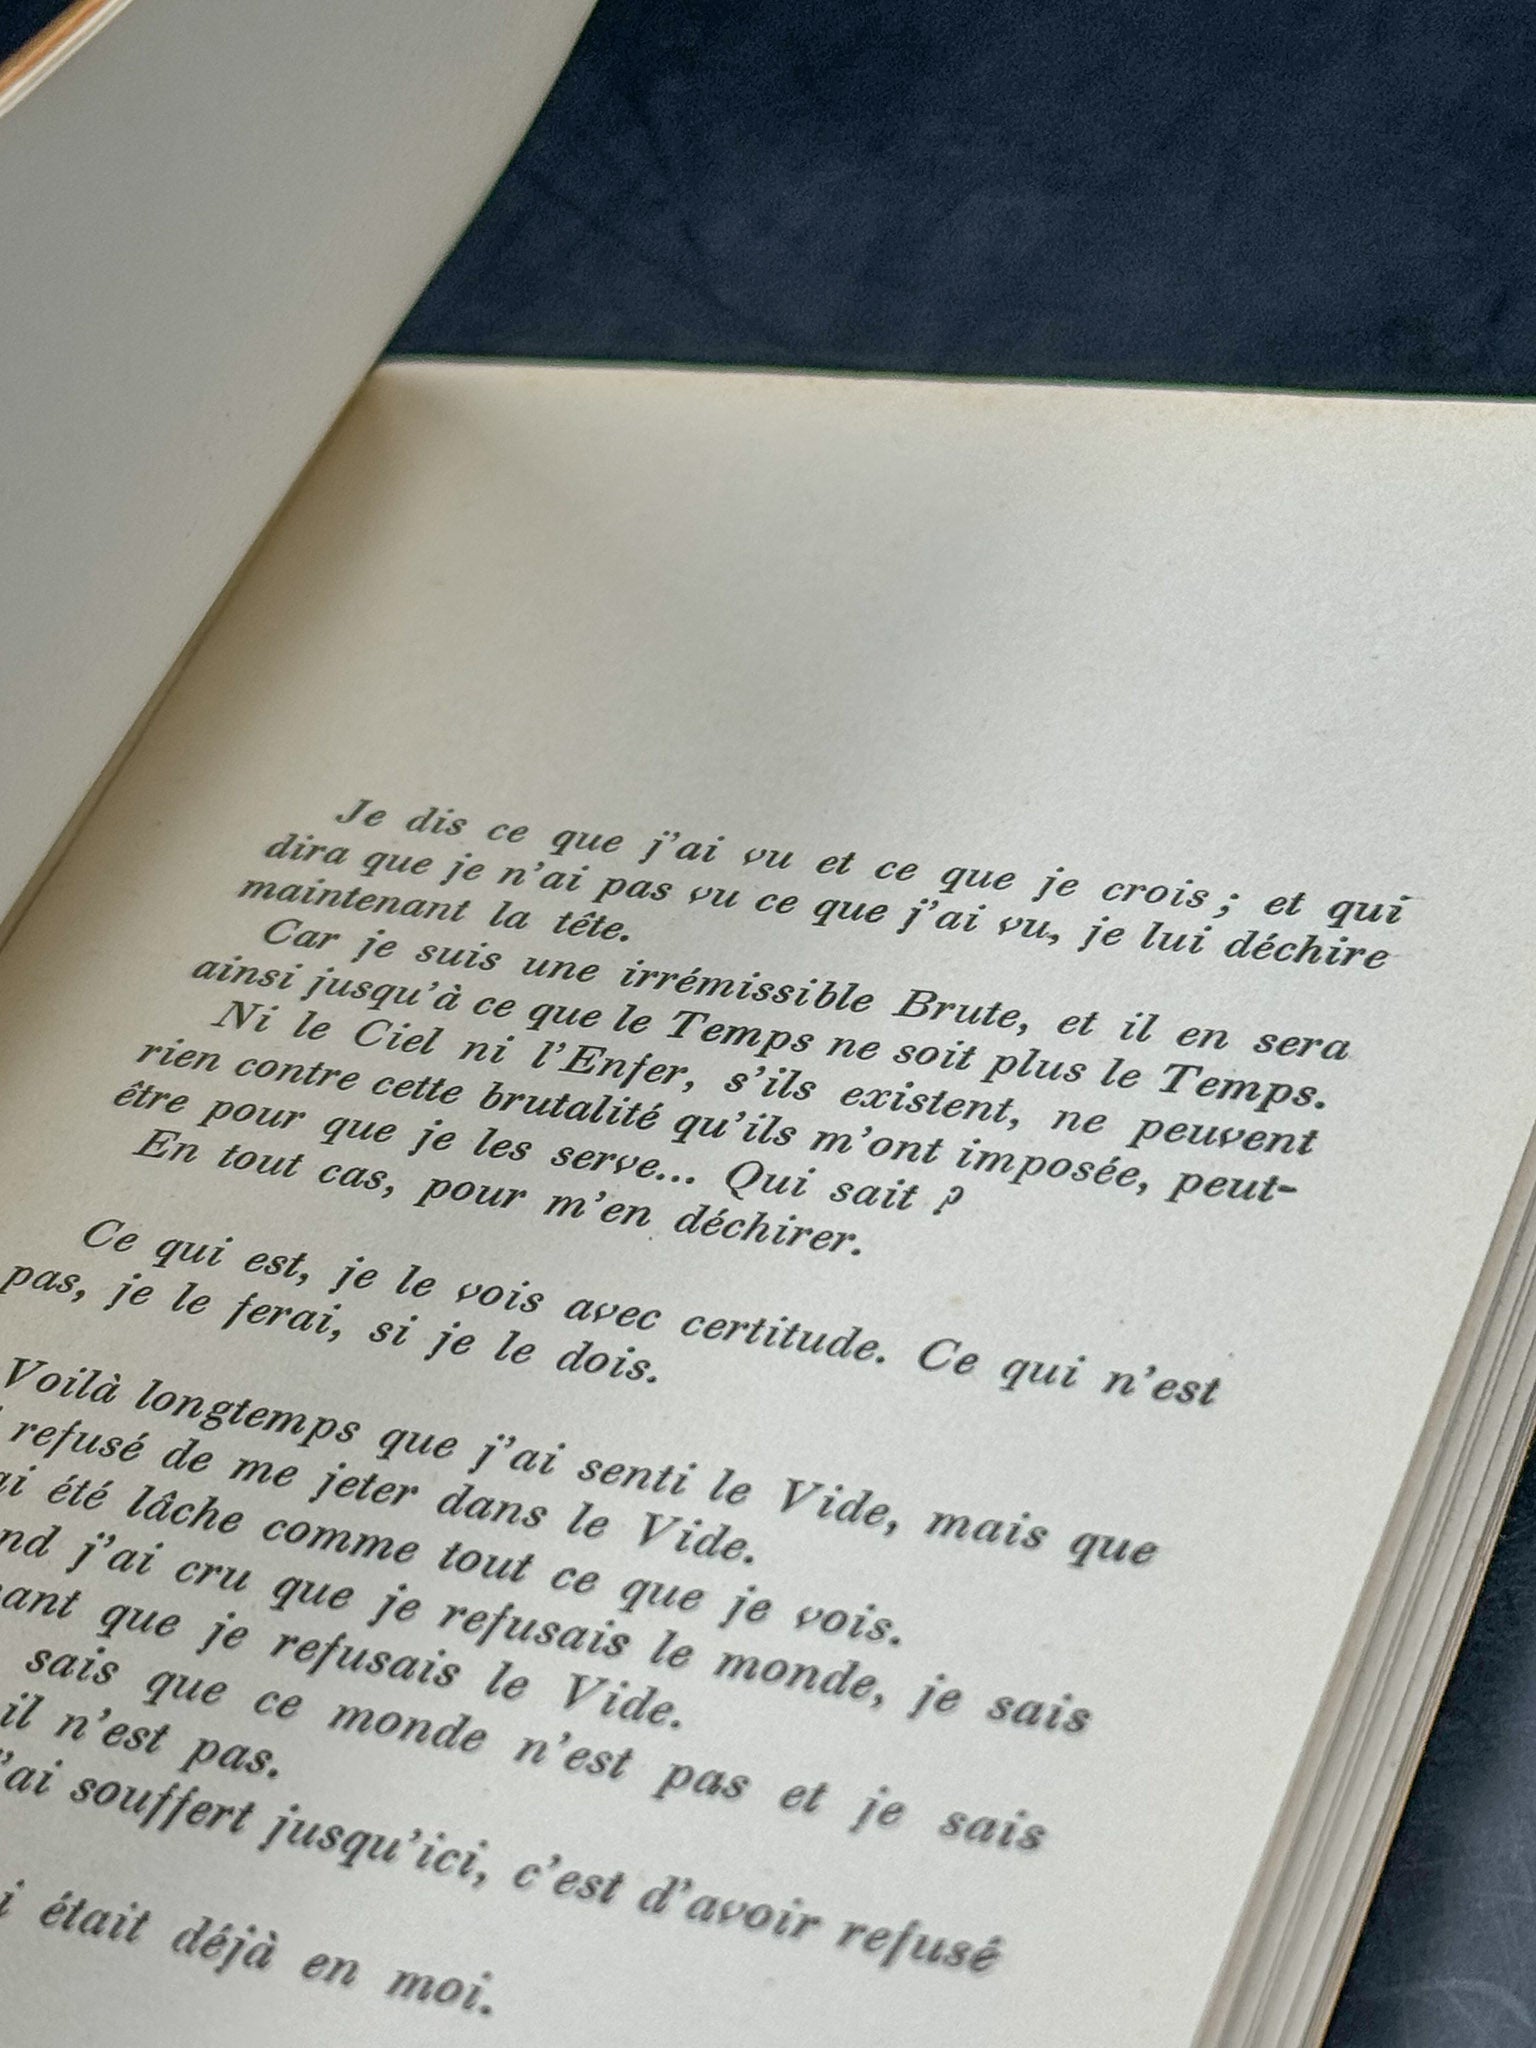 Je dis ce que j'ai vu et ce que je crois ; et qui
dira que je n'ai pas vu ce que j'ai vu, je lui déchire
maintenant la tête.
Car je suis une irrémissible Brute, et il en sera
ainsi jusqu'à ce que le Temps ne soit plus le Temps.
Ni le Ciel ni l'Enfer, s'ils existent, ne peuvent
rien contre cette brutalité qu'ils m'ont imposée, peut-
être pour que je les serve... Qui sait ?
En tout cas, pour m'en déchirer.
Ce qui est, je le vois avec certitude. Ce qui n'est
pas, je le ferai, si je le dois.
Voilà longtemps que j'ai senti le Vide, mais que
refusé de me jeter dans le Vide.
ai été lâche comme tout ce que je vois.
nd j'ai cru que je refusais le monde, je sais
ant que je refusais le Vide.
sais que ce monde n'est pas et je sais
il n'est pas.
'ai souffert jusqu'ici, c'est d'avoir refusé
i était déjà en moi.